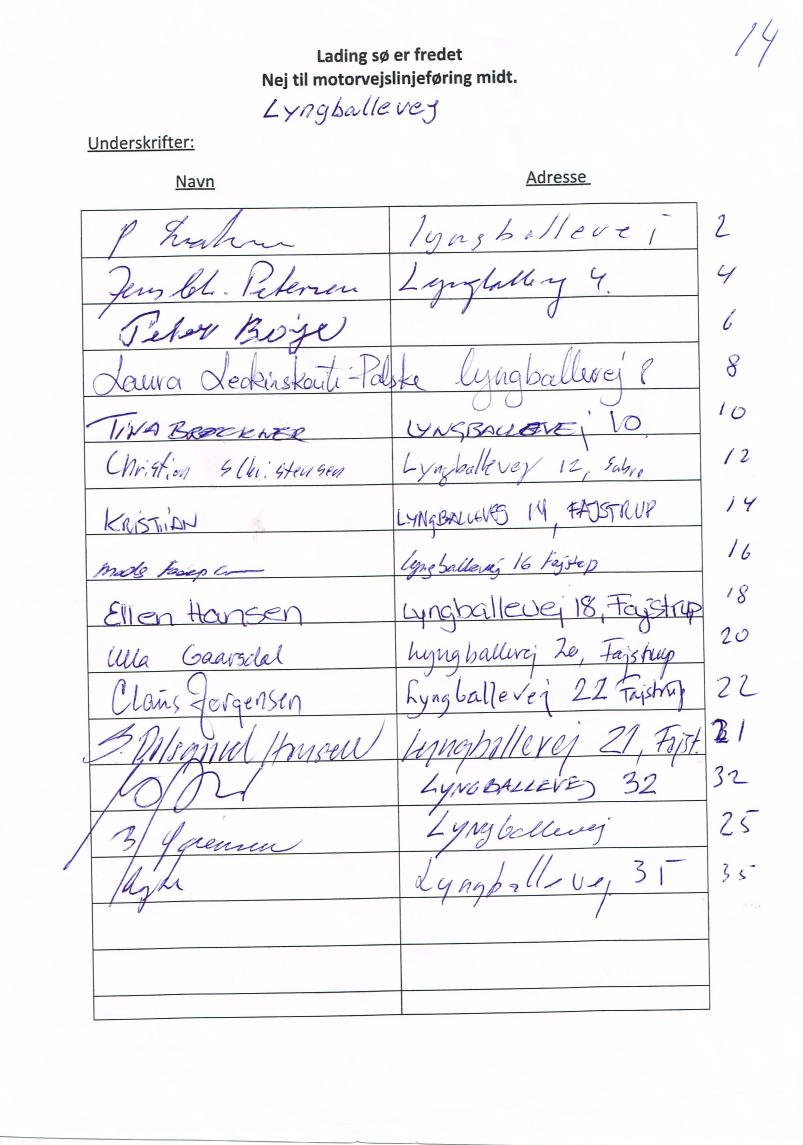 14
Lading sø er fredet
Nej til motorvejslinjeføring midt.
Lyngballevej
Underskrifter:
Navn Adresse
P lyngballevej 2
Jens Chr. Petersen Lyngballevej 4. 4
Peter Boye 6
Laura -Palske lyngballevej 8 8
TINA BRØCKNER LYNGBALLEVEJ 10 10
Christian Christensen Lyngballevej 12, Sabro 12
KRISTIAN LYNGBALLEVEJ 14, FAJSTRUP 14
Mads Lyngballevej 16 Fajstrup 16
Ellen Hansen Lyngballevej 18, Fajstrup 18
Ulla Gaarsdal Lyngballevej 20, Fajstrup 20
Claus Jørgensen Lyngballevej 22 Fajstrup 22
Hansen Lyngballevej 21, Fajst. 21
LYNGBALLEVEJ 32 32
Lyngballevej 25
Lyngballevej 35 35